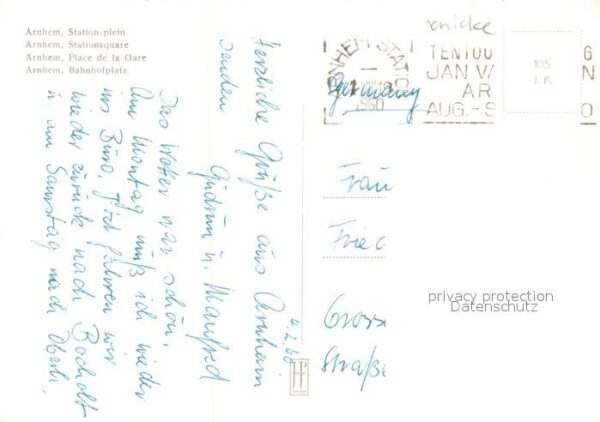 Arnhem, Stationsplein
Arnhem, Stationsquare
Arnhem, Place de la Gare
Arnhem, Bahnhofplatz
Herzliche Grüße aus Arnhem
senden
Gudrun u. Manfred
Das Wetter war schön.
Am Montag muß ich wieder
ins Büro. Jetzt fahren wir
wieder zurück nach Bocholt
u. am Samstag nach Oberh.
ARNHEM STATION
1960
TENTOO G
JAN VA N
AR
AUG.-S O
105
I.P.
Germany
Frau
Fried
Gross
Straße
privacy protection
Datenschutz